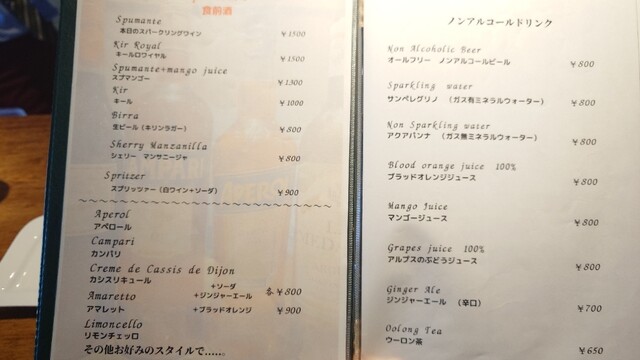 食前酒
Spumante
本日のスパークリングワイン ￥1500
Kir Royal
キールロワイヤル ￥1500
Spumante+mango juice
スプマンゴー ￥1300
Kir
キール ￥1000
Birra
生ビール（キリンラガー） ￥800
Sherry Manzanilla
シェリー マンサニージャ ￥800
Spritzer
スプリッツァー（白ワイン+ソーダ） ￥900
Aperol
アペロール
Campari
カンパリ
Creme de Cassis de Dijon
カシスリキュール +ソーダ
Amaretto +ジンジャーエール 各￥800
アマレット +ブラッドオレンジ ￥900
Limoncello
リモンチェッロ
その他お好みのスタイルで.....。
ノンアルコールドリンク
Non Alcoholic Beer
オールフリー ノンアルコールビール ￥800
Sparkling water
サンペレグリノ （ガス有ミネラルウォーター） ￥800
Non Sparkling water
アクアパンナ （ガス無ミネラルウォーター） ￥800
Blood orange juice 100%
ブラッドオレンジジュース ￥800
Mango Juice
マンゴージュース ￥800
Grapes juice 100%
アルプスのぶどうジュース ￥800
Ginger Ale
ジンジャーエール （辛口） ￥700
Oolong Tea
ウーロン茶 ￥650